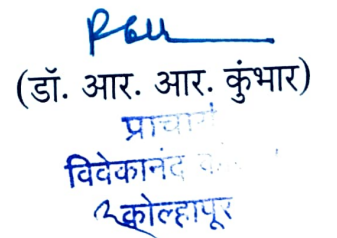 (डॉ. आर. आर. कुंभार)
प्राचार्य
विवेकानंद
कोल्हापूर